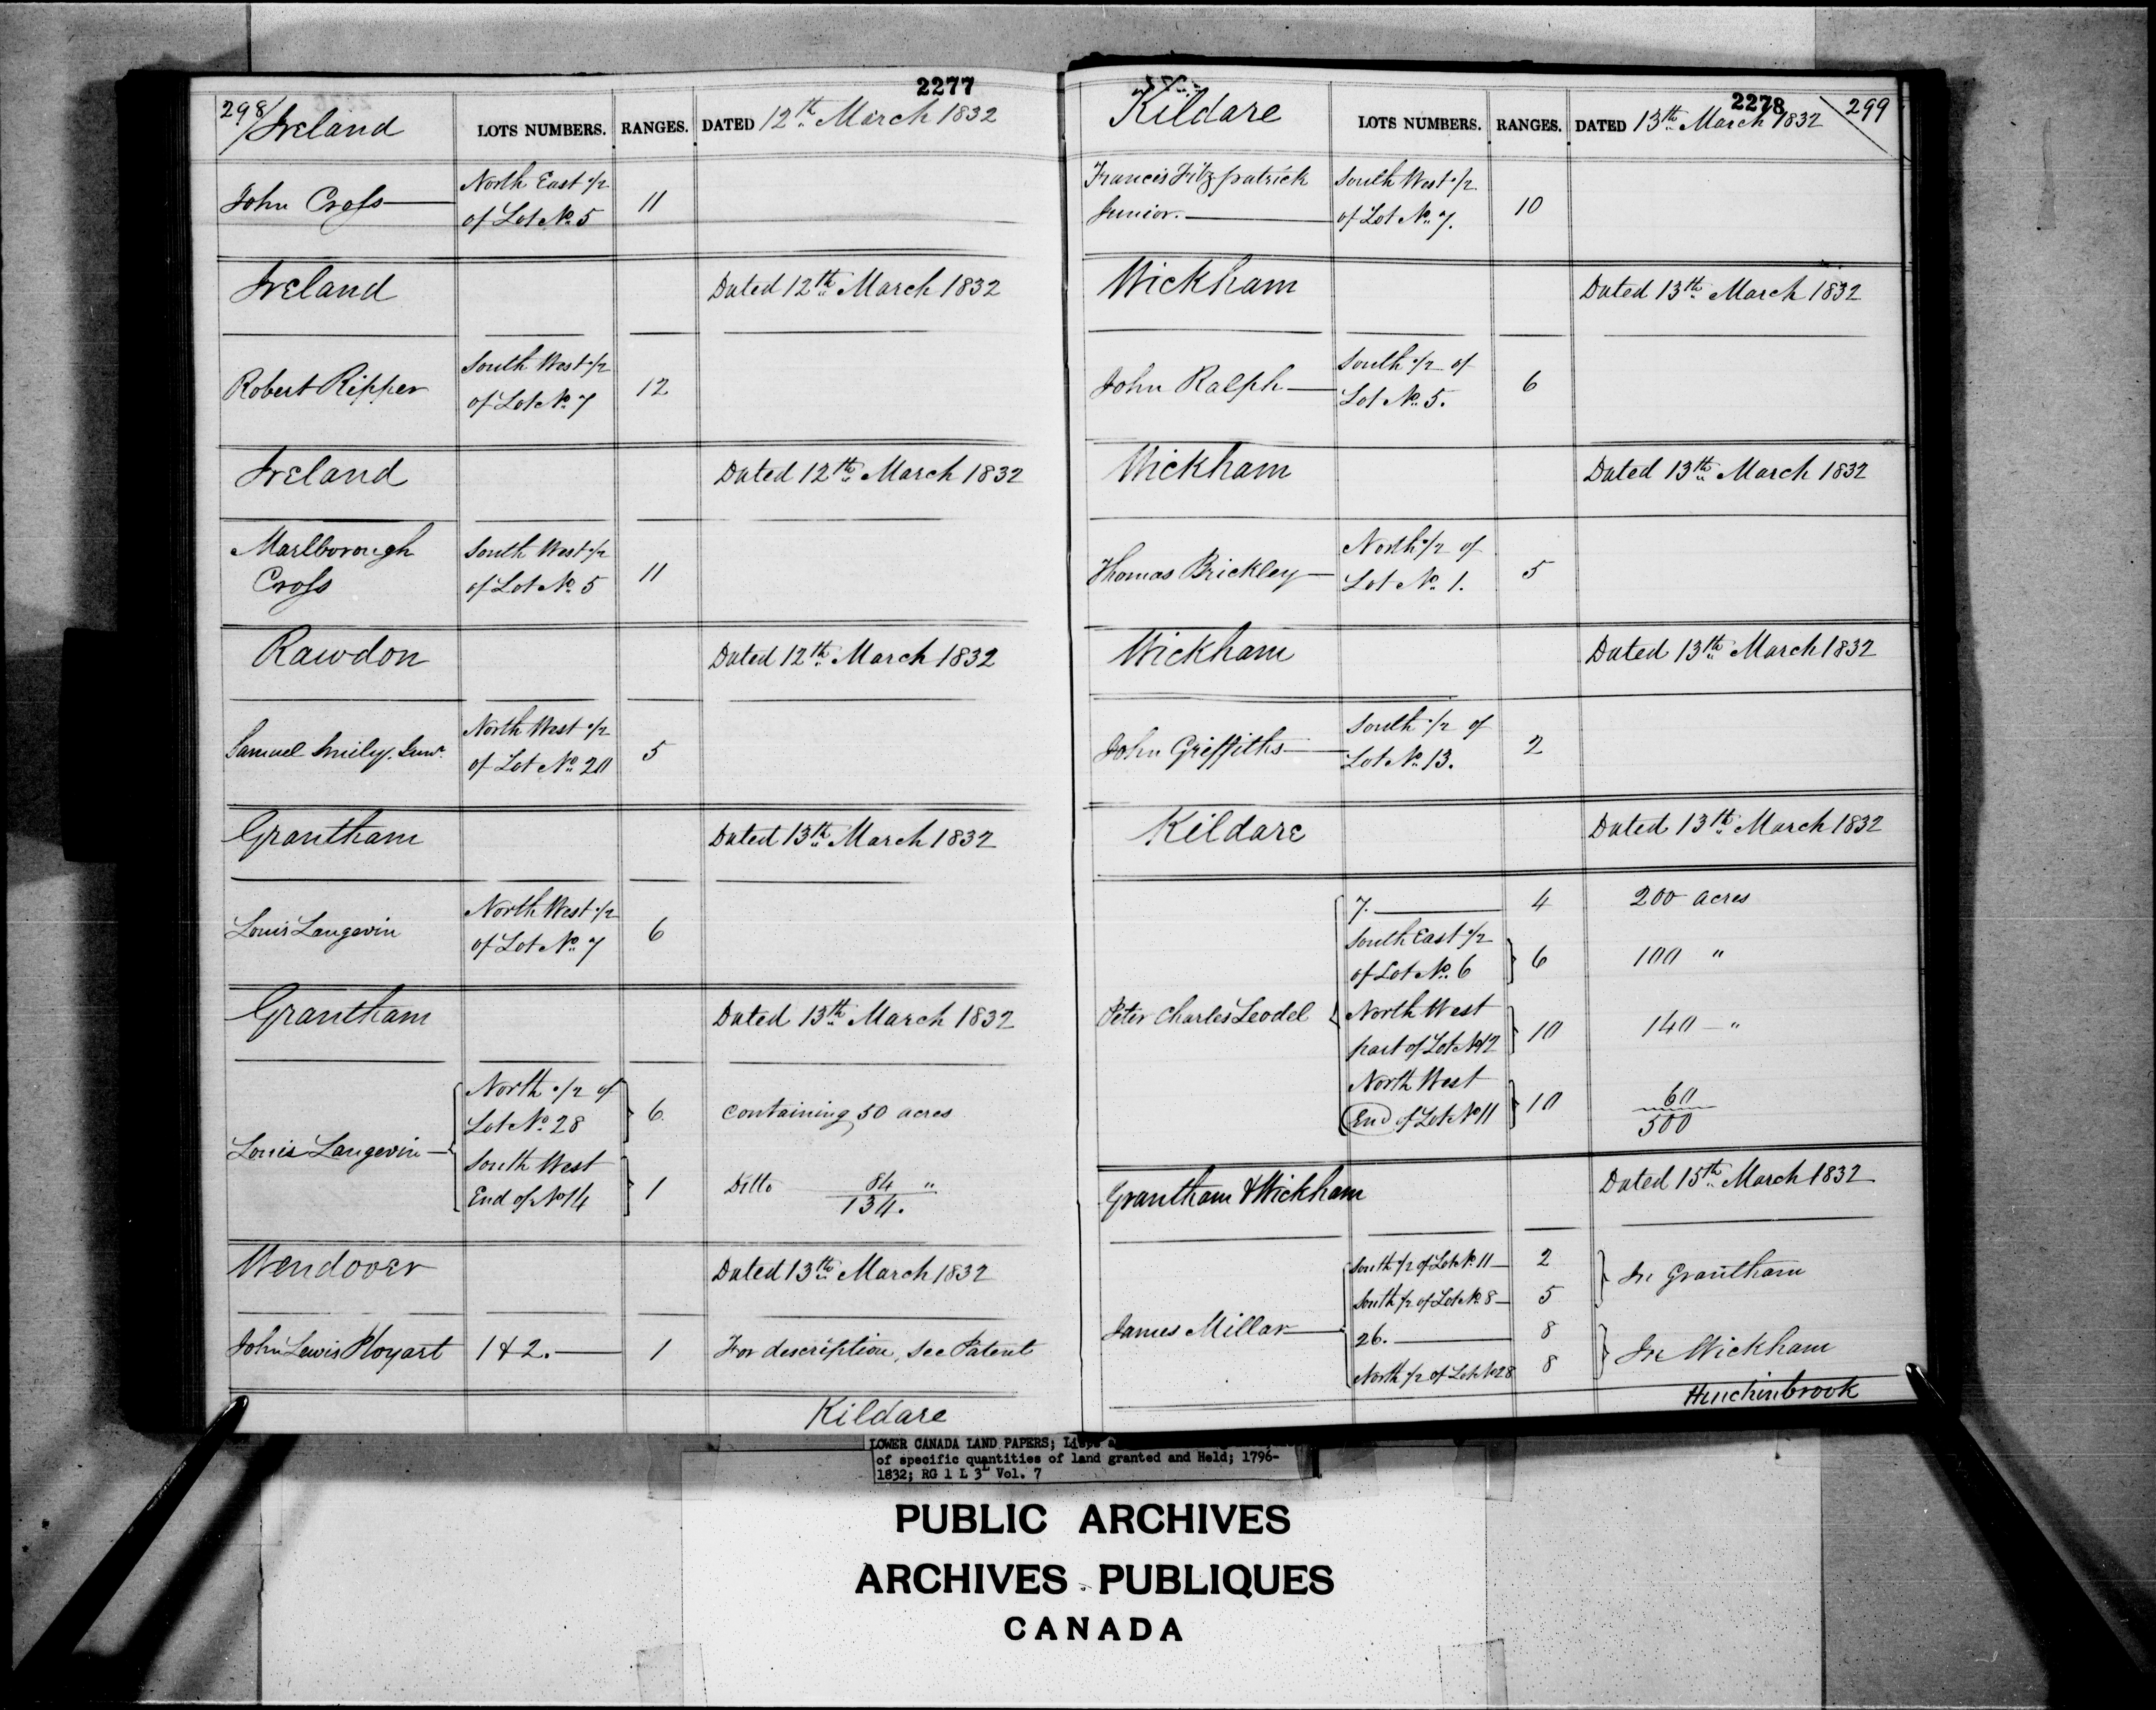 2277
298/ Ireland LOTS NUMBERS. RANGES. DATED 12th March 1832
North East 1/2
John Cross 11
of Lot No. 5
Ireland Dated 12th March 1832
South West 1/2
Robert Ripper 12
of Lot No. 7
Ireland Dated 12th March 1832
Marlborough South West 1/2
Cross of Lot No. 5 11
Rawdon Dated 12th March 1832
North West 1/2
Samuel Smily, Junr. 5
of Lot No. 20
Grantham Dated 13th March 1832
North West 1/2
Louis Langevin 6
of Lot No. 7
Grantham Dated 13th March 1832
North 1/2 of
Lot No. 28 6 containing 50 acres
Louis Langevin
South West
End of No 14 1 Ditto 84 "
134.
Wendover Dated 13th March 1832
John Lewis Ployart 1 & 2. 1 For description, see Patent
Kildare
2278
Kildare LOTS NUMBERS. RANGES. DATED 13th March 1832 299
Francis Fitzpatrick South West 1/2
Junior. of Lot No. 7. 10
Wickham Dated 13th March 1832
South 1/2 of
John Ralph 6
Lot No. 5.
Wickham Dated 13th March 1832
North 1/2 of
Thomas Brickley 5
Lot No. 1.
Wickham Dated 13th March 1832
South 1/2 of
John Griffiths 2
Lot No. 13.
Kildare Dated 13th March 1832
7. 4 200 acres
South East 1/2
of Lot No. 6 6 100 "
Peter Charles Leodel North West
part of Lot No 12 10 140 "
North West
End of Lot No 11 10 60
500
Grantham & Wickham Dated 15th March 1832
South 1/2 of Lot No. 11 2
In Grantham
South 1/2 of Lot No. 8 5
James Millar 26. 8
In Wickham
North 1/2 of Lot No 28 8
Hinchinbrook
LOWER CANADA LAND PAPERS;
of specific quantities of land granted and Held; 1796-
1832; RG 1 L 3L Vol. 7
PUBLIC ARCHIVES
ARCHIVES PUBLIQUES
CANADA